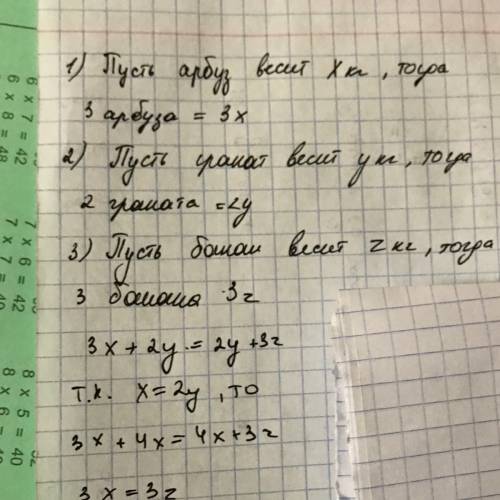 1) Пусть арбуз весит X кг, тогда
3 арбуза = 3x
2) Пусть гранат весит y кг, тогда
2 граната = 2y
3) Пусть банан весит z кг, тогда
3 банана 3z
3x + 2y = 2y + 3z
т.к. x = 2y, то
3x + 4x = 4x + 3z
3x = 3z
6 x 7 = 42
6 x 8 = 48
7 x 6 = 42
7 x 7 = 49
8 x 5 = 40